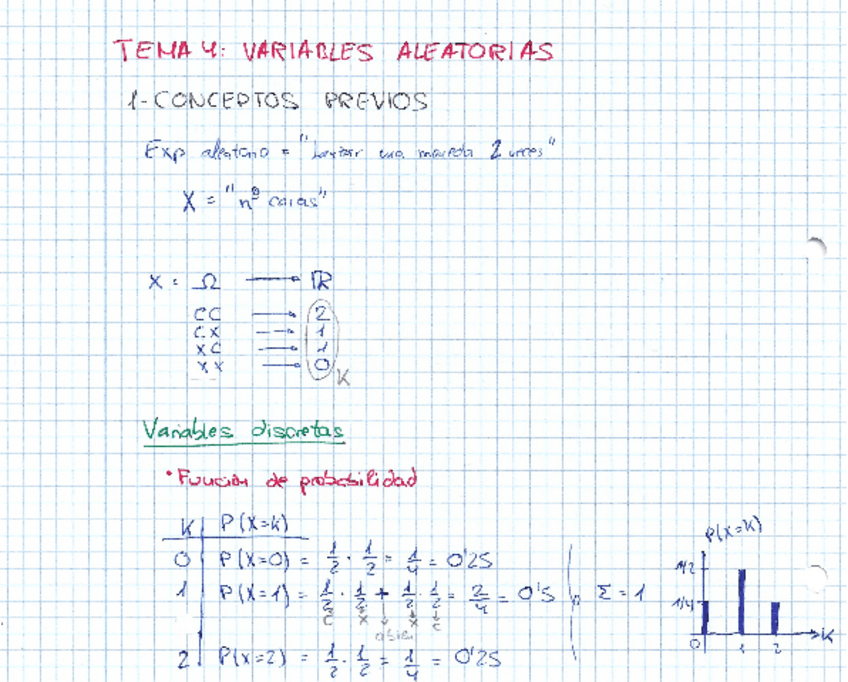 TEMA 4: VARIABLES ALEATORIAS
1-CONCEPTOS PREVIOS
Exp aleatorio = "Lanzar una moneda 2 veces"
X = "nº caras"
X = Ω → ℝ
CC → 2
CX → 1
XC → 1
XX → 0
K
Variables discretas
• Función de probabilidad
K | P(X=K)
0 | P(X=0) = 1/2 · 1/2 = 1/4 = 0'25
1 | P(X=1) = 1/2 · 1/2 + 1/2 · 1/2 = 2/4 = 0'5
C X X C
2 | P(X=2) = 1/2 · 1/2 = 1/4 = 0'25
Σ = 1
P(X=K)
1/2
1/4
0 1 2 K